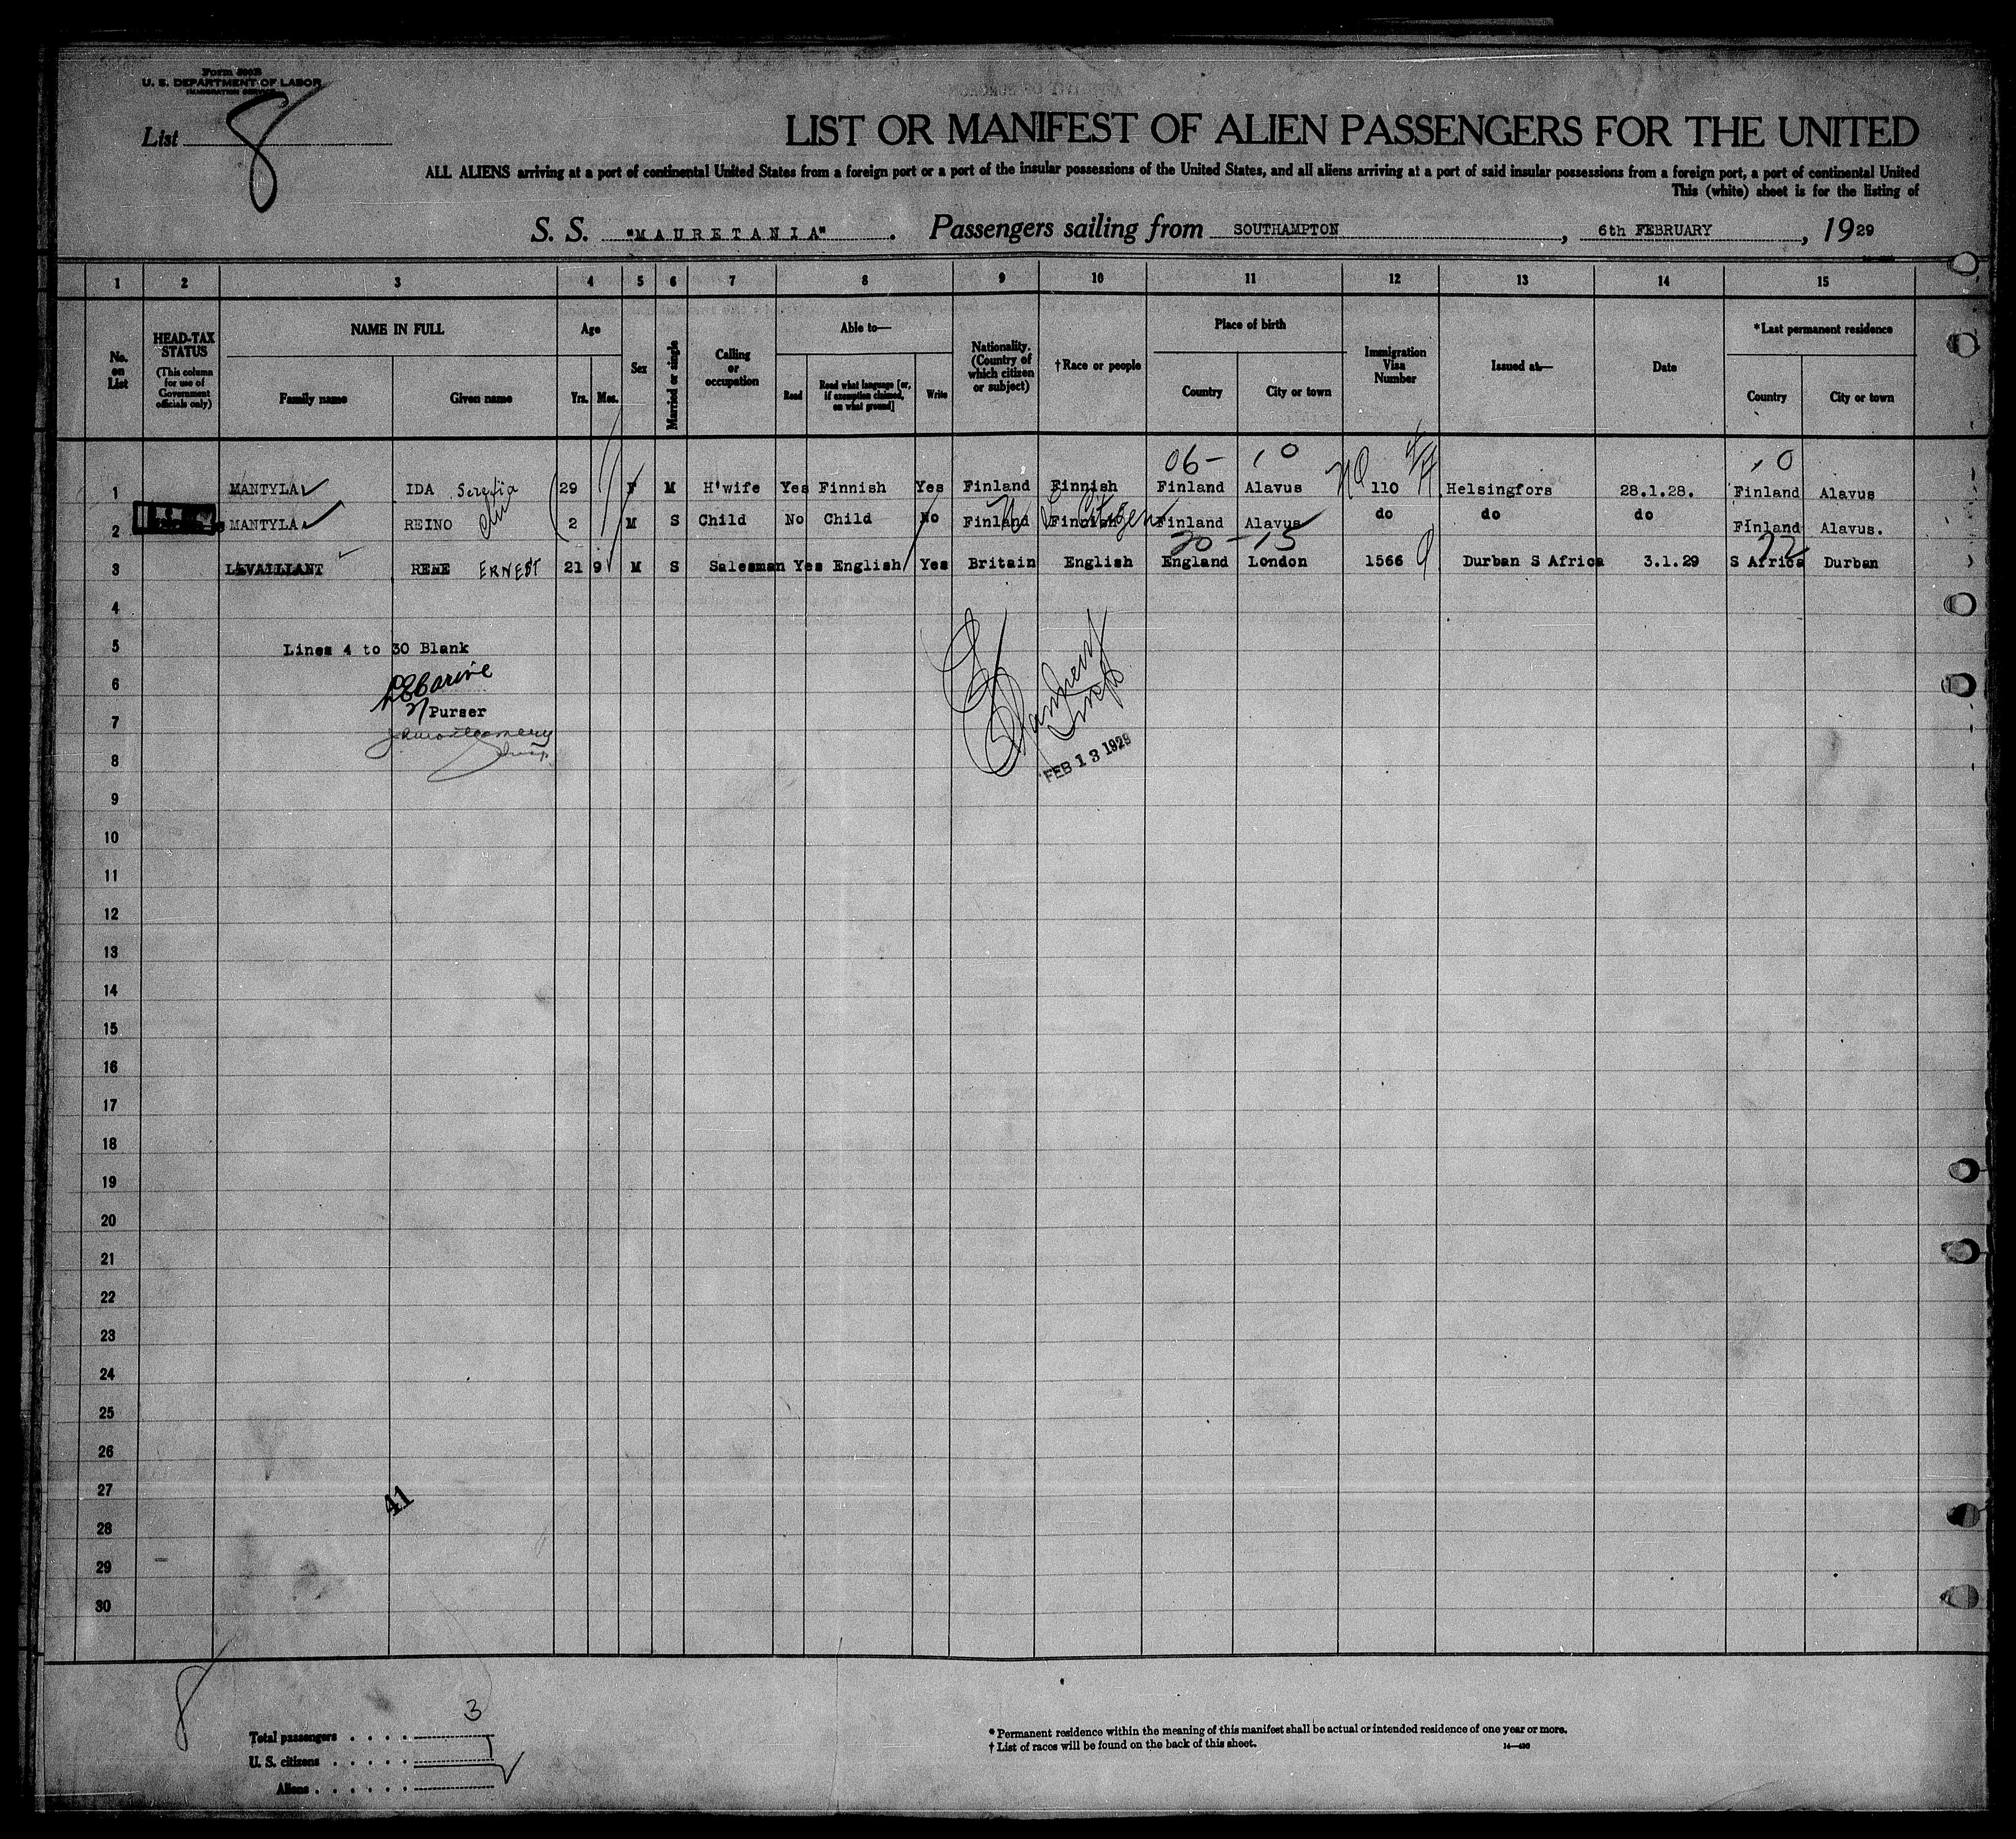 Form 500B
U. S. DEPARTMENT OF LABOR
IMMIGRATION SERVICE
List 8
LIST OR MANIFEST OF ALIEN PASSENGERS FOR THE UNITED
ALL ALIENS arriving at a port of continental United States from a foreign port or a port of the insular possessions of the United States, and all aliens arriving at a port of said insular possessions from a foreign port, a port of continental United
This (white) sheet is for the listing of
S. S. "MAURETANIA". Passengers sailing from SOUTHAMPTON, 6th FEBRUARY, 1929
1 2 3 4 5 6 7 8 9 10 11 12 13 14 15
No. on List
HEAD-TAX STATUS
(This column for use of Government officials only)
NAME IN FULL
Family name Given name
Age
Yrs. Mos.
Sex
Married or single
Calling or occupation
Able to—
Read Read what language [or, if exemption claimed, on what ground] Write
Nationality. (Country of which citizen or subject)
†Race or people
Place of birth
Country City or town
Immigration Visa Number
Issued at—
Date
*Last permanent residence
Country City or town
06- 10 10
1 MANTYLA IDA 29 F M H'wife Yes Finnish Yes Finland Finnish Finland Alavus NQ 110 Helsingfors 28.1.28. Finland Alavus
2 MANTYLA REINO 2 M S Child No Child No Finland Finnish Finland Alavus do do do Finland Alavus.
U S Citizen
20-15 72
3 LEVAILLANT RENE ERNEST 21 9 M S Salesman Yes English Yes Britain English England London 1566 Durban S Africa 3.1.29 S Africa Durban
4
5 Lines 4 to 30 Blank
6
7 Purser
8
FEB 13 1929
9
10
11
12
13
14
15
16
17
18
19
20
21
22
23
24
25
26
27
41
28
29
30
8
Total passengers . . . . 3
U. S. citizens . . . . . 1
Aliens . . . . . .
* Permanent residence within the meaning of this manifest shall be actual or intended residence of one year or more.
† List of races will be found on the back of this sheet.